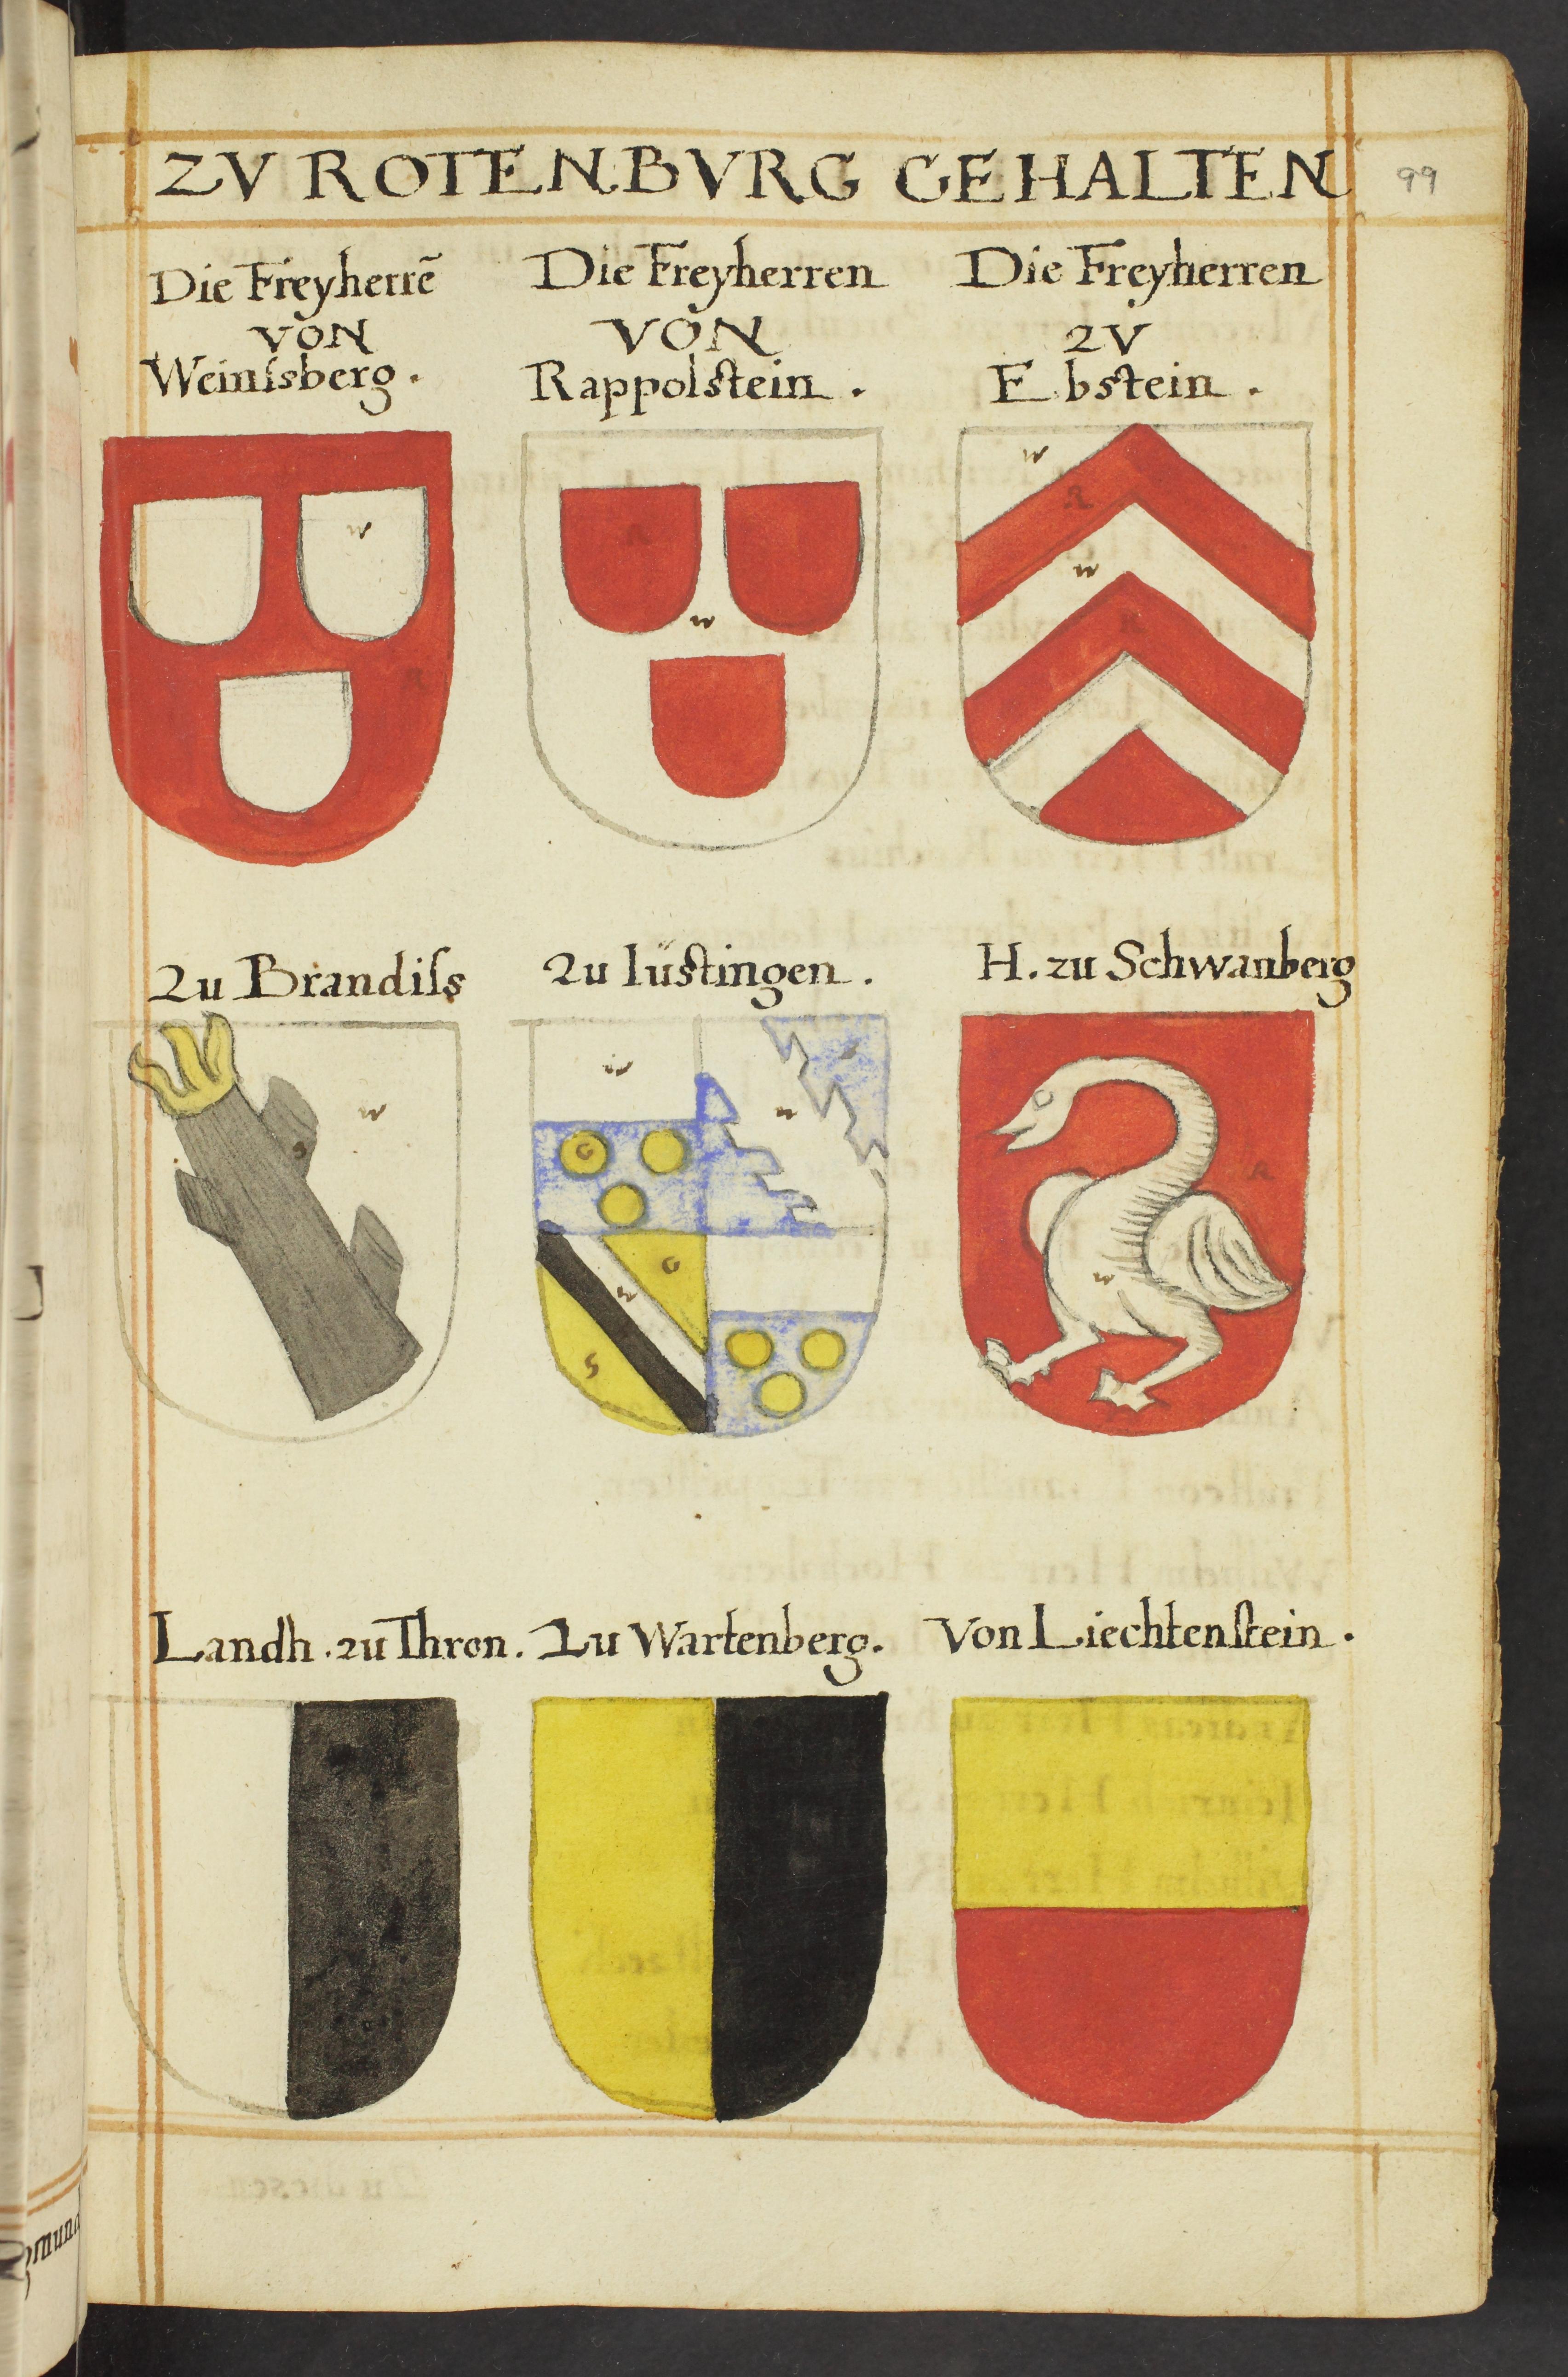 ZV ROTENBVRG GEHALTEN
99
Die Freyherrē
VON
Weinſsberg.
Die Freyherren
VON
Rappolſtein.
Die Freyherren
ZV
Ebſtein.
w
R
R
w
w
R
w
R
Zu Brandiſs
Zu lüſtingen.
H. zu Schwanberg
w
S
w
G
w
G
w
S
R
w
Landh. zu Thron.
Zu Wartenberg.
Von Liechtenſtein.